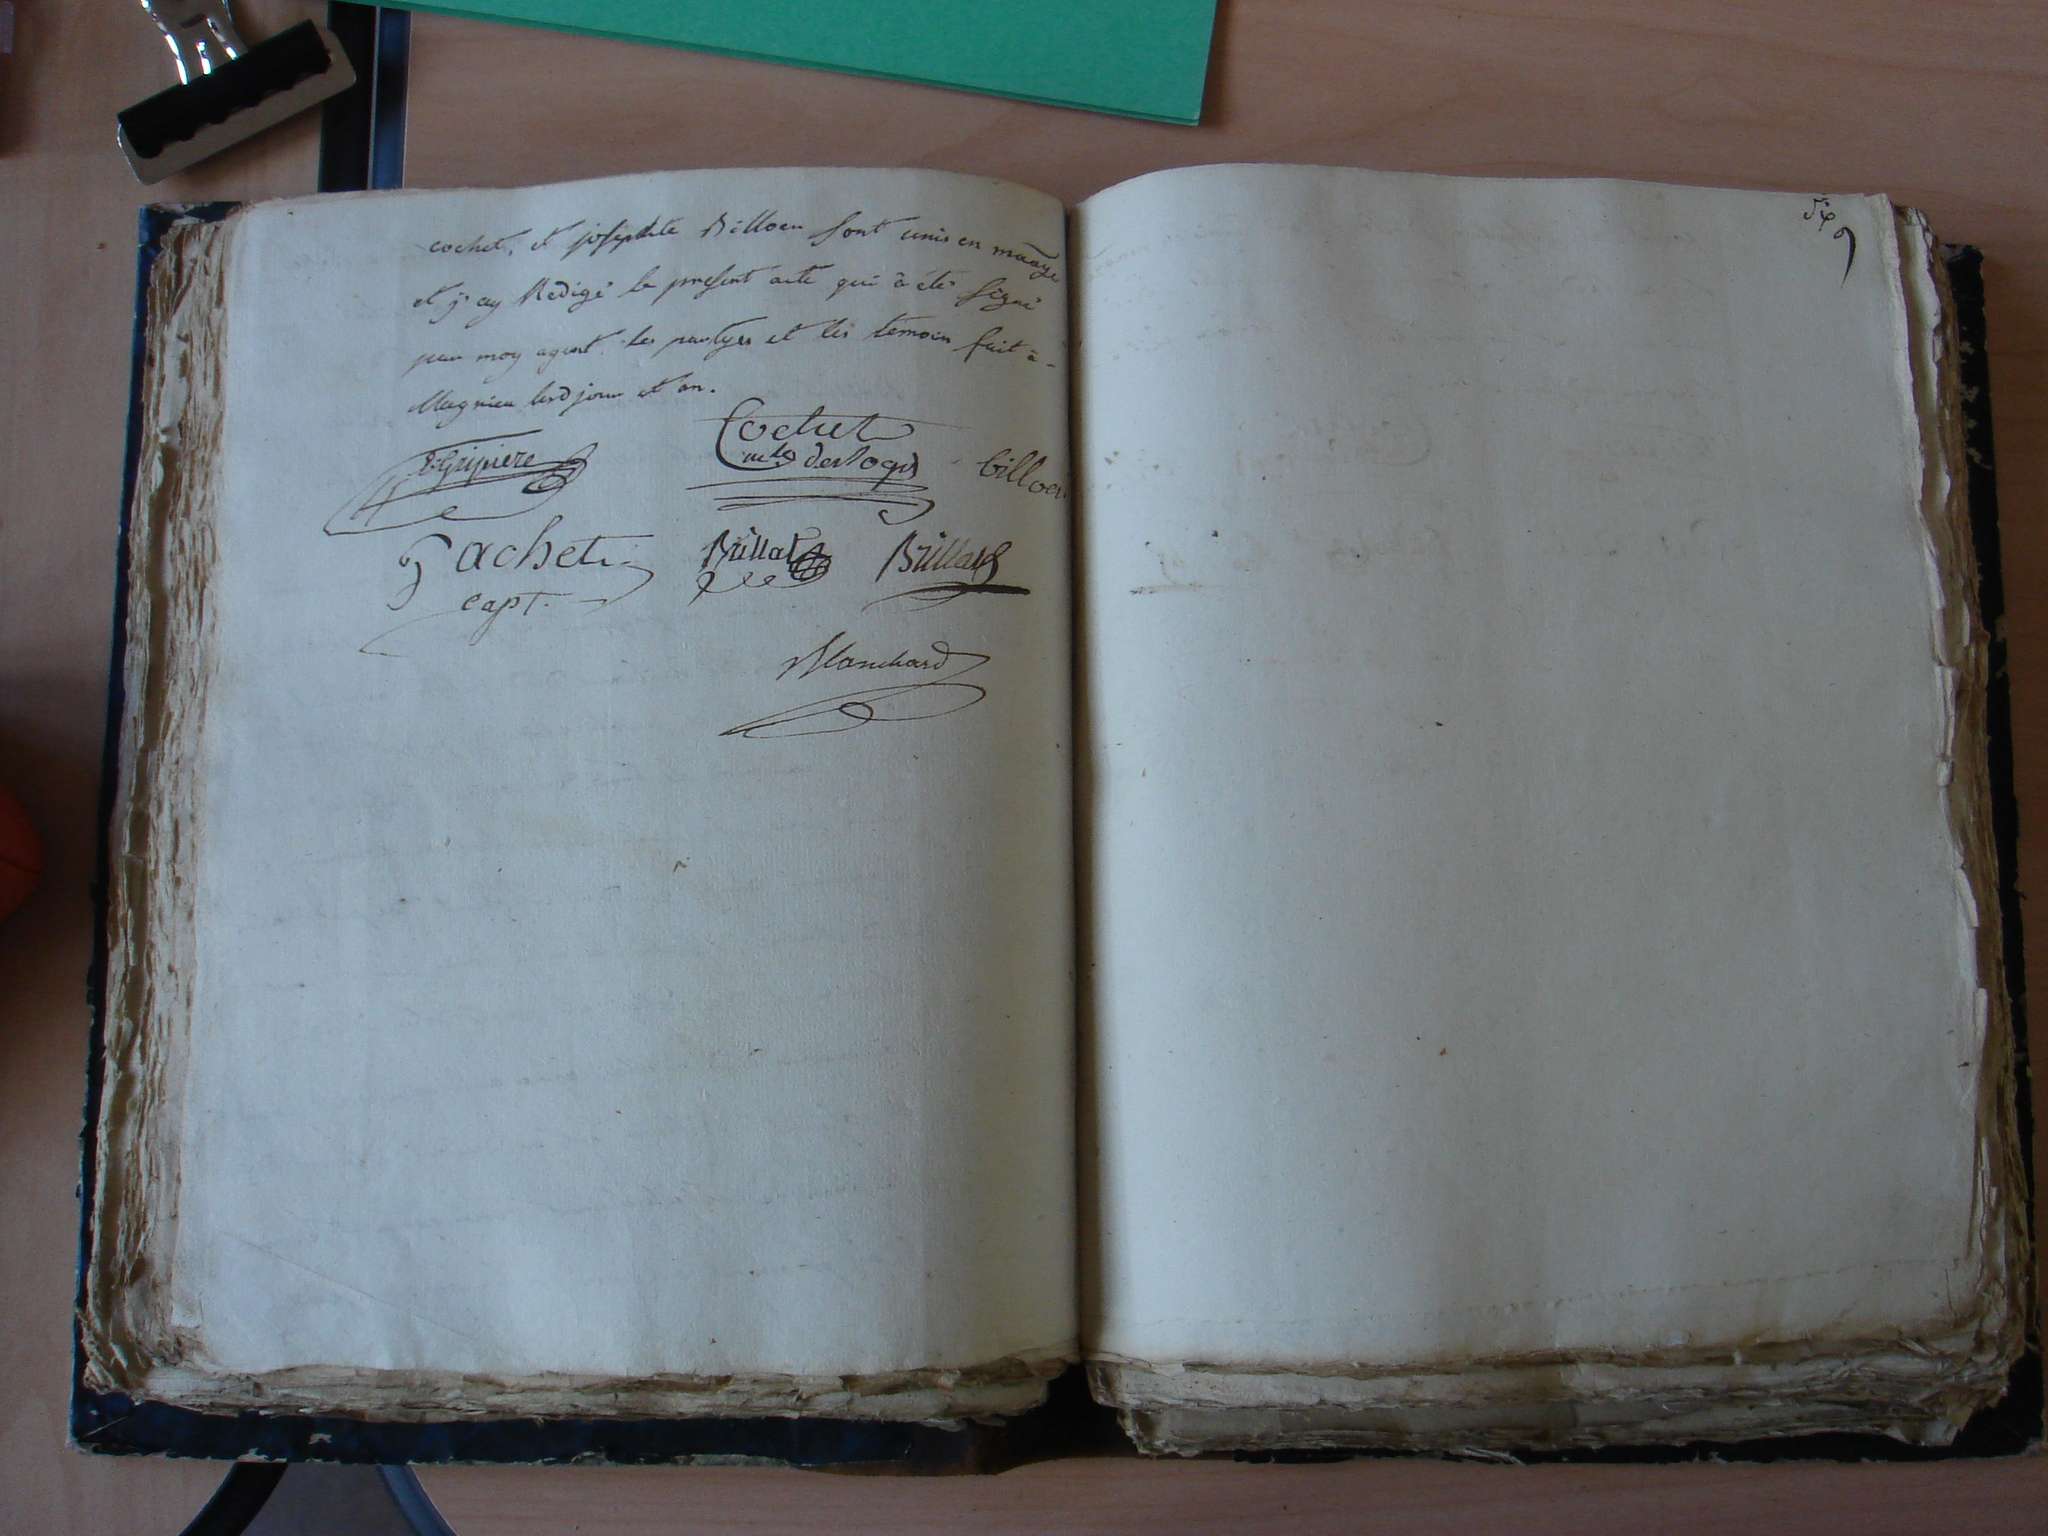 cochet, et josephte Billoen sont unis en mariage
et j'ay Redigé le present acte qui à été signé
par moy agent les partyes et les temoin fait à
Magnieu lesd jour et an.
Cochet
mls deslogis
billoen
Gripiere
pachet
capt.
Brillat
Brillat
Blanchard
six